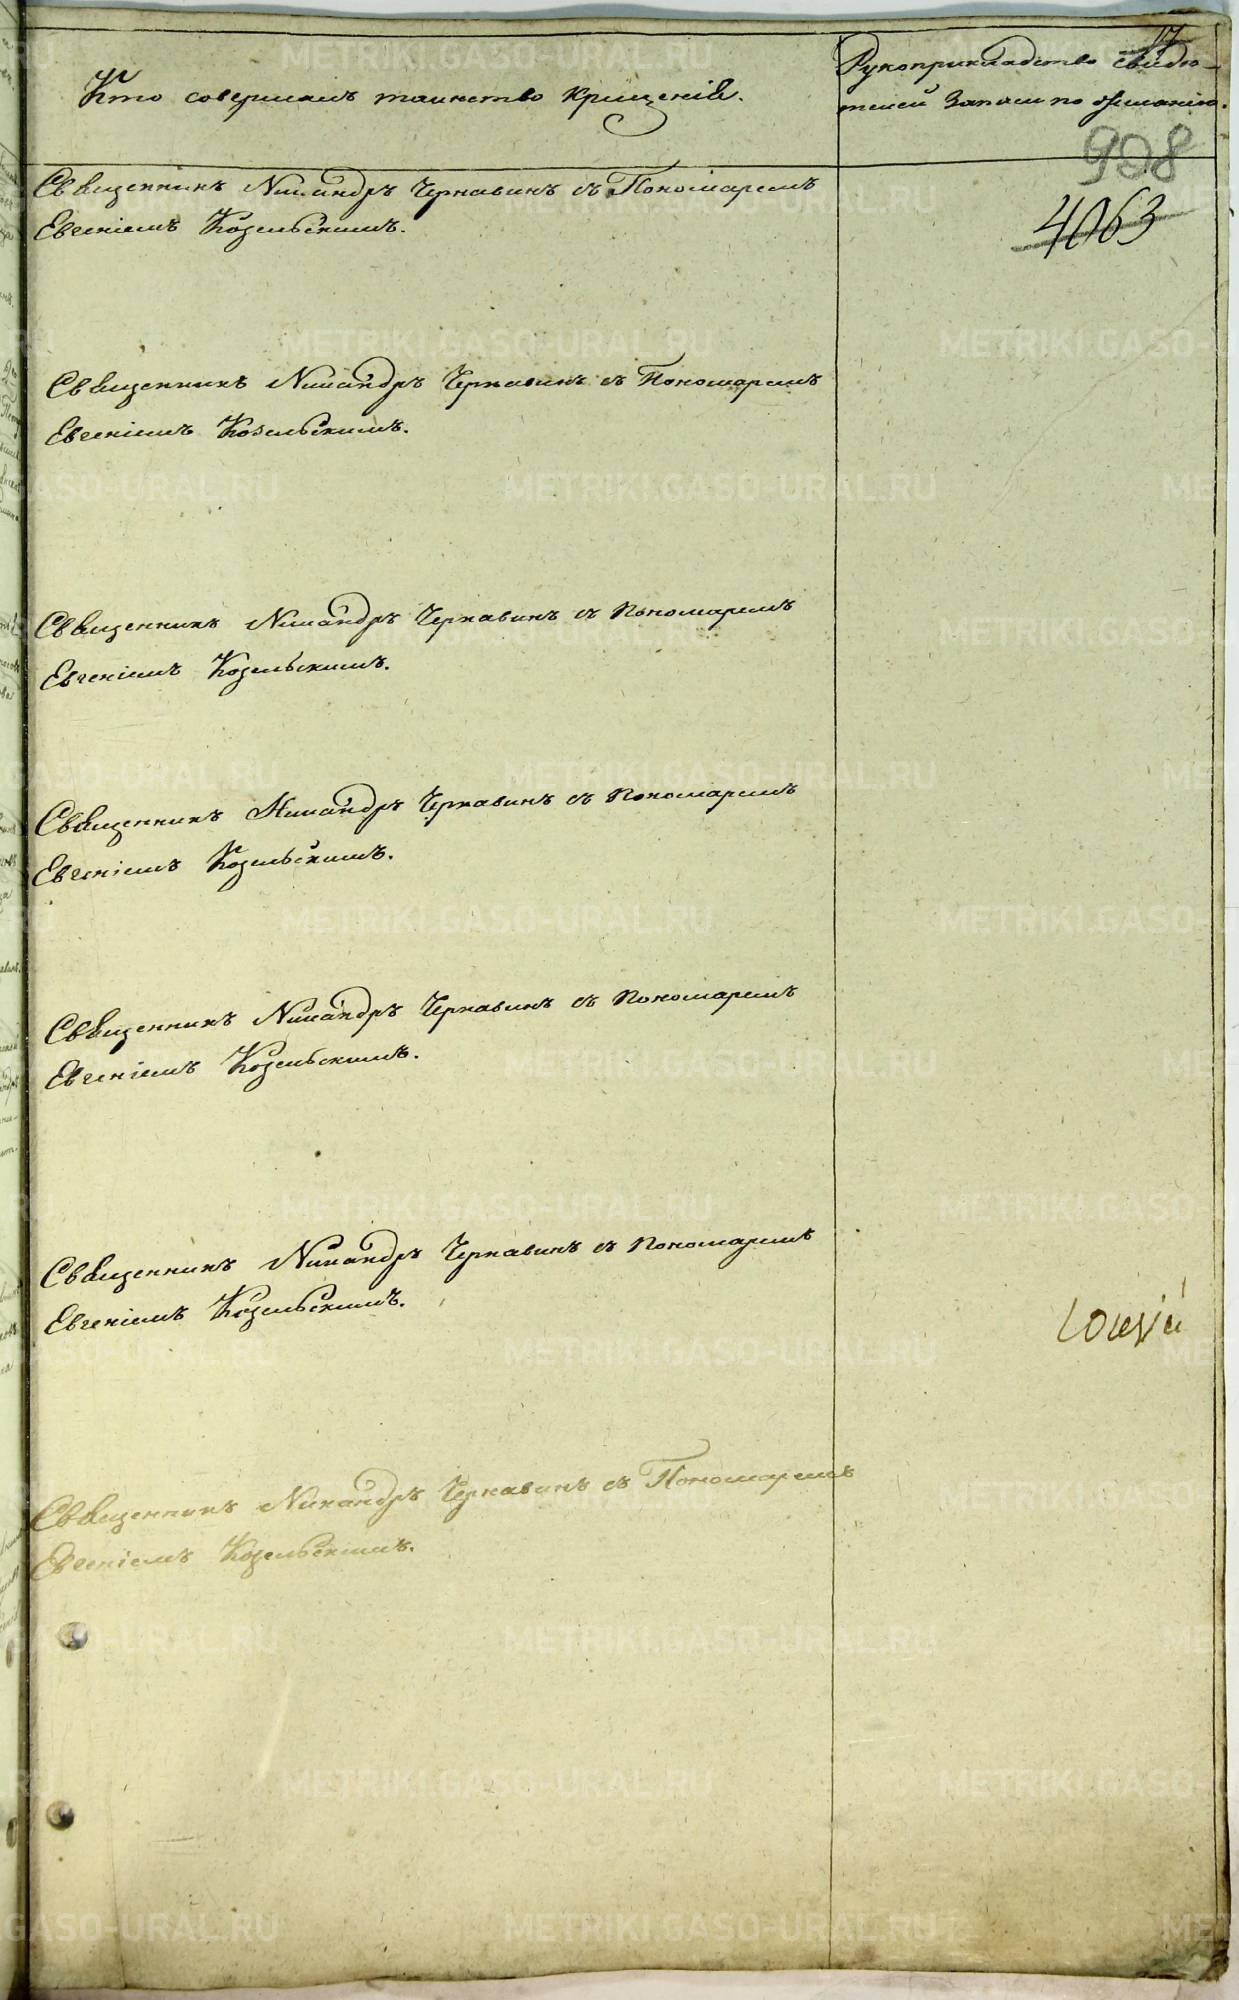 17
Кто совершалъ таинство крещенія.
Рукоприкладство свидѣ-
телей записи по желанію.
908
4063
Священникъ Никандръ Чернавинъ съ Пономаремъ
Евгеніемъ Козельскимъ.
Священникъ Никандръ Чернавинъ съ Пономаремъ
Евгеніемъ Козельскимъ.
Священникъ Никандръ Чернавинъ съ Пономаремъ
Евгеніемъ Козельскимъ.
Священникъ Никандръ Чернавинъ съ Пономаремъ
Евгеніемъ Козельскимъ.
Священникъ Никандръ Чернавинъ съ Пономаремъ
Евгеніемъ Козельскимъ.
Священникъ Никандръ Чернавинъ съ Пономаремъ
Евгеніемъ Козельскимъ.
Священникъ Никандръ Чернавинъ съ Пономаремъ
Евгеніемъ Козельскимъ.
METRIKI.GASO-URAL.RU